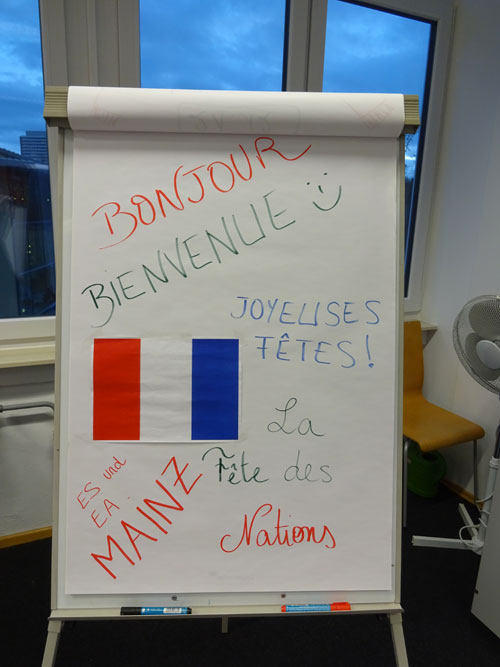 BONJOUR
BIENVENUE
JOYEUSES
FÊTES!
La
Fête des
Nations
ES und
EA.
MAINZ